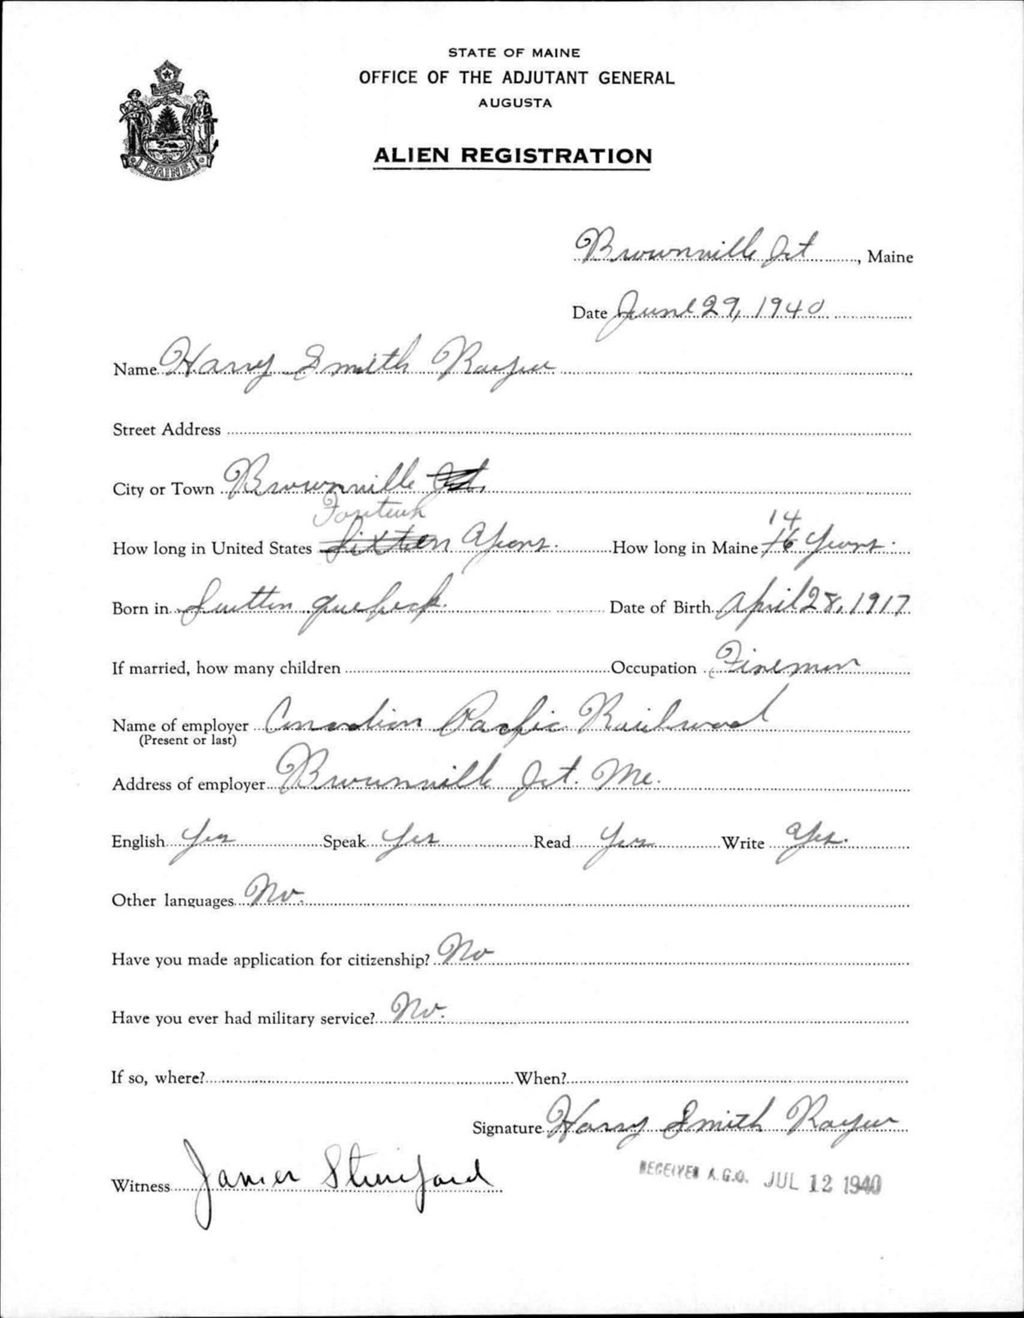 STATE OF MAINE
OFFICE OF THE ADJUTANT GENERAL
AUGUSTA
ALIEN REGISTRATION
MAINE
Brownville Jct, Maine
Date June 29, 1940
Name Harry Smith
Street Address
City or Town Brownville Jct.
How long in United States Sixteen Years. How long in Maine 14 16 Years.
Born in Sutton Quebeck. Date of Birth April 28, 1917
If married, how many children Occupation Fireman
Name of employer Canadian Pacific Railroad
(Present or last)
Address of employer Brownville Jct. Me.
English Yes Speak Yes Read Yes Write Yes.
Other languages No.
Have you made application for citizenship? No
Have you ever had military service? No.
If so, where? When?
Signature Harry Smith
Witness James
RECEIVED A.G.O. JUL 12 1940